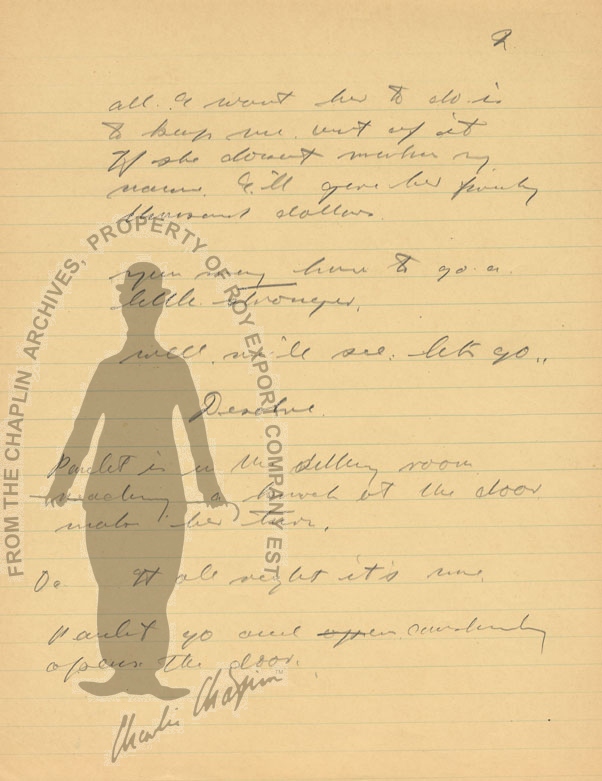 2
all. I want her to do is
to keep me. out of it
If she doesent mention my
name. I'll give her
thousand dollars.
you may have to go a.
little stronger.
well. we'll see. let's go..
Desolve.
is in the sitting room
reading a knock at the door
makes her turn.
It all right it's me.
go and cautiously
opens the door.
FROM THE CHAPLIN ARCHIVES, PROPERTY OF ROY EXPORT COMPANY EST
Charlie Chaplin™